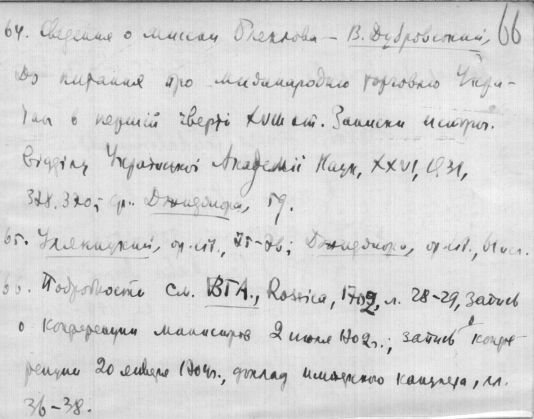 66
64. Сведения о миссии – В. Дубровский,
До питання про міжнародню торговлю Украї-
ни в першій чверті XVIII ст. Записки истор.
Відділу Української Академії Наук, XXVI, 1931,
ср. Джиджора, 59.
65. ор. cit., Джиджора, ор. cit., 61 сл.
66. Подробности см. ВГА., Rossica, 1702, л. 28-29, запись
о конференции министров 2 июля 1702 г.; запись конфе-
ренции 20 января 1704 г., доклад канцлера, лл.
36-38.